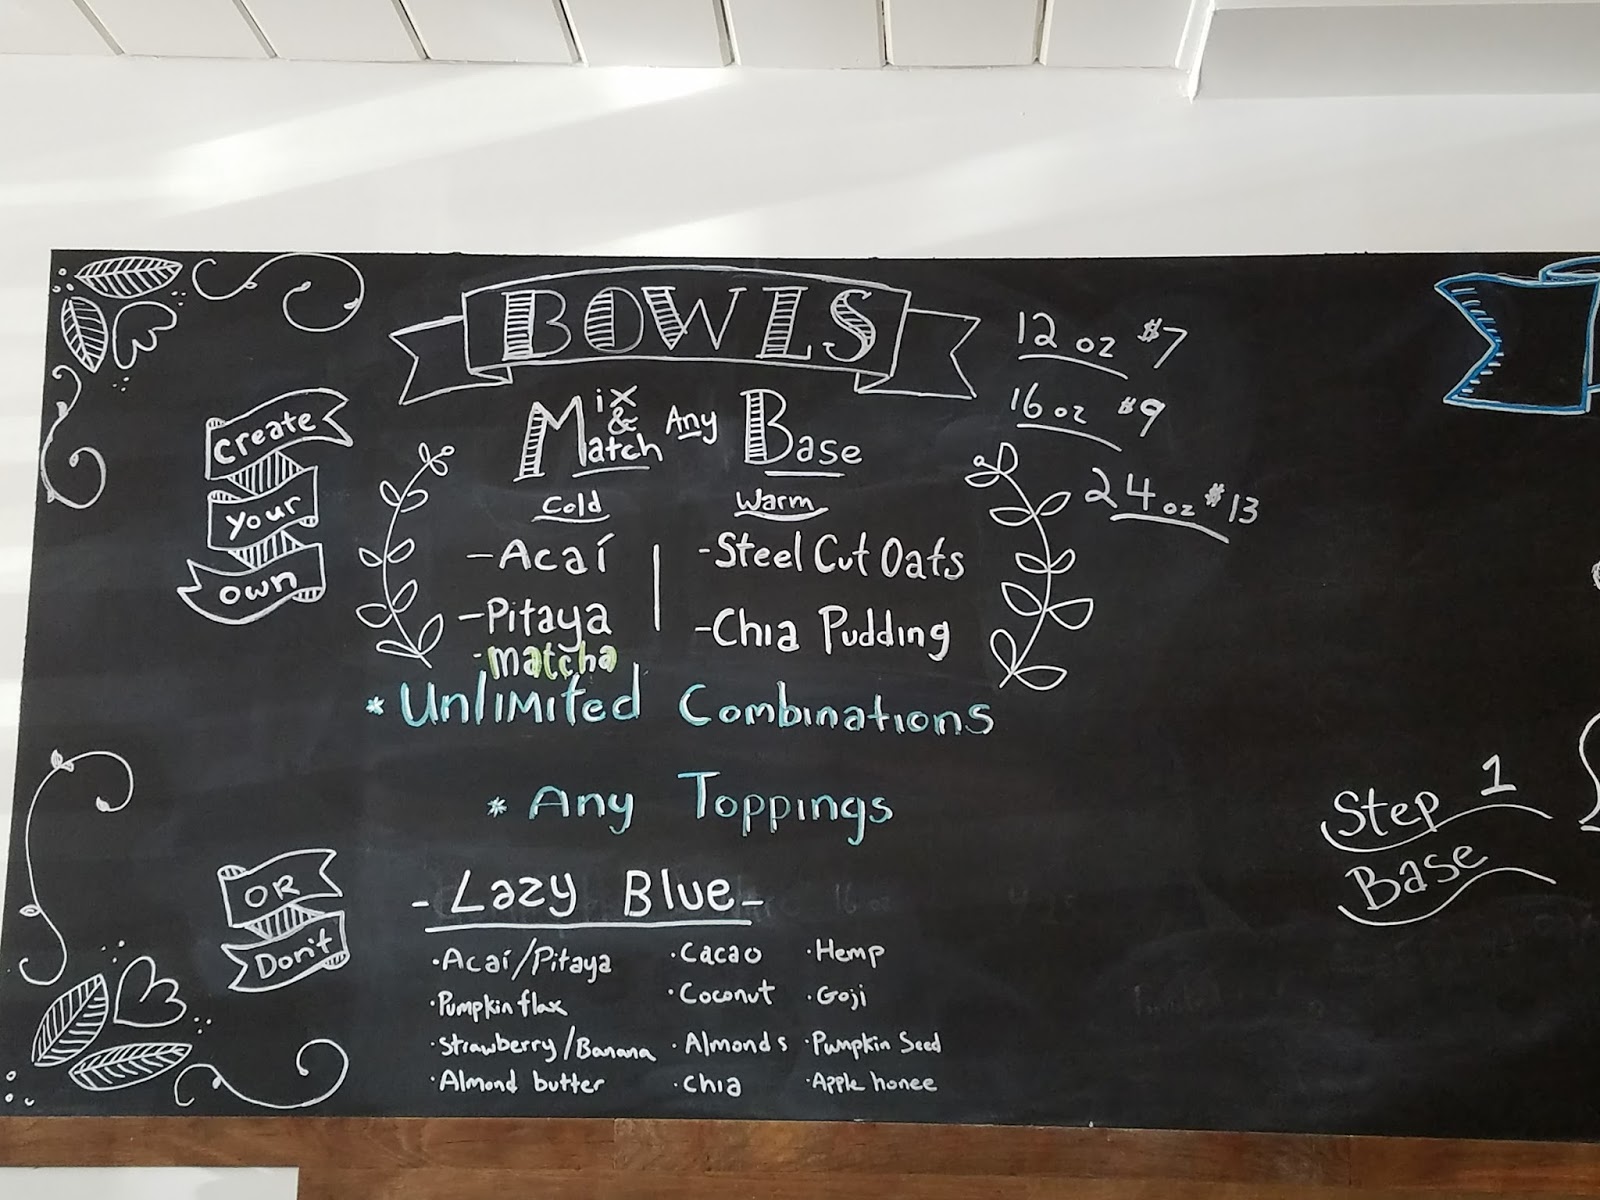 BOWLS
12 oz $7
16 oz $9
24 oz $13
Create
Your
Own
Mix & Match Any Base
Cold
- Acaí
- Pitaya
- matcha
Warm
- Steel Cut Oats
- Chia Pudding
* Unlimited Combinations
* Any Toppings
OR
Don't
- Lazy Blue -
· Acaí/Pitaya
· Pumpkin flax
· Strawberry/Banana
· Almond butter
· Cacao
· Coconut
· Almonds
· Chia
· Hemp
· Goji
· Pumpkin Seed
· Apple honee
Step 1
Base